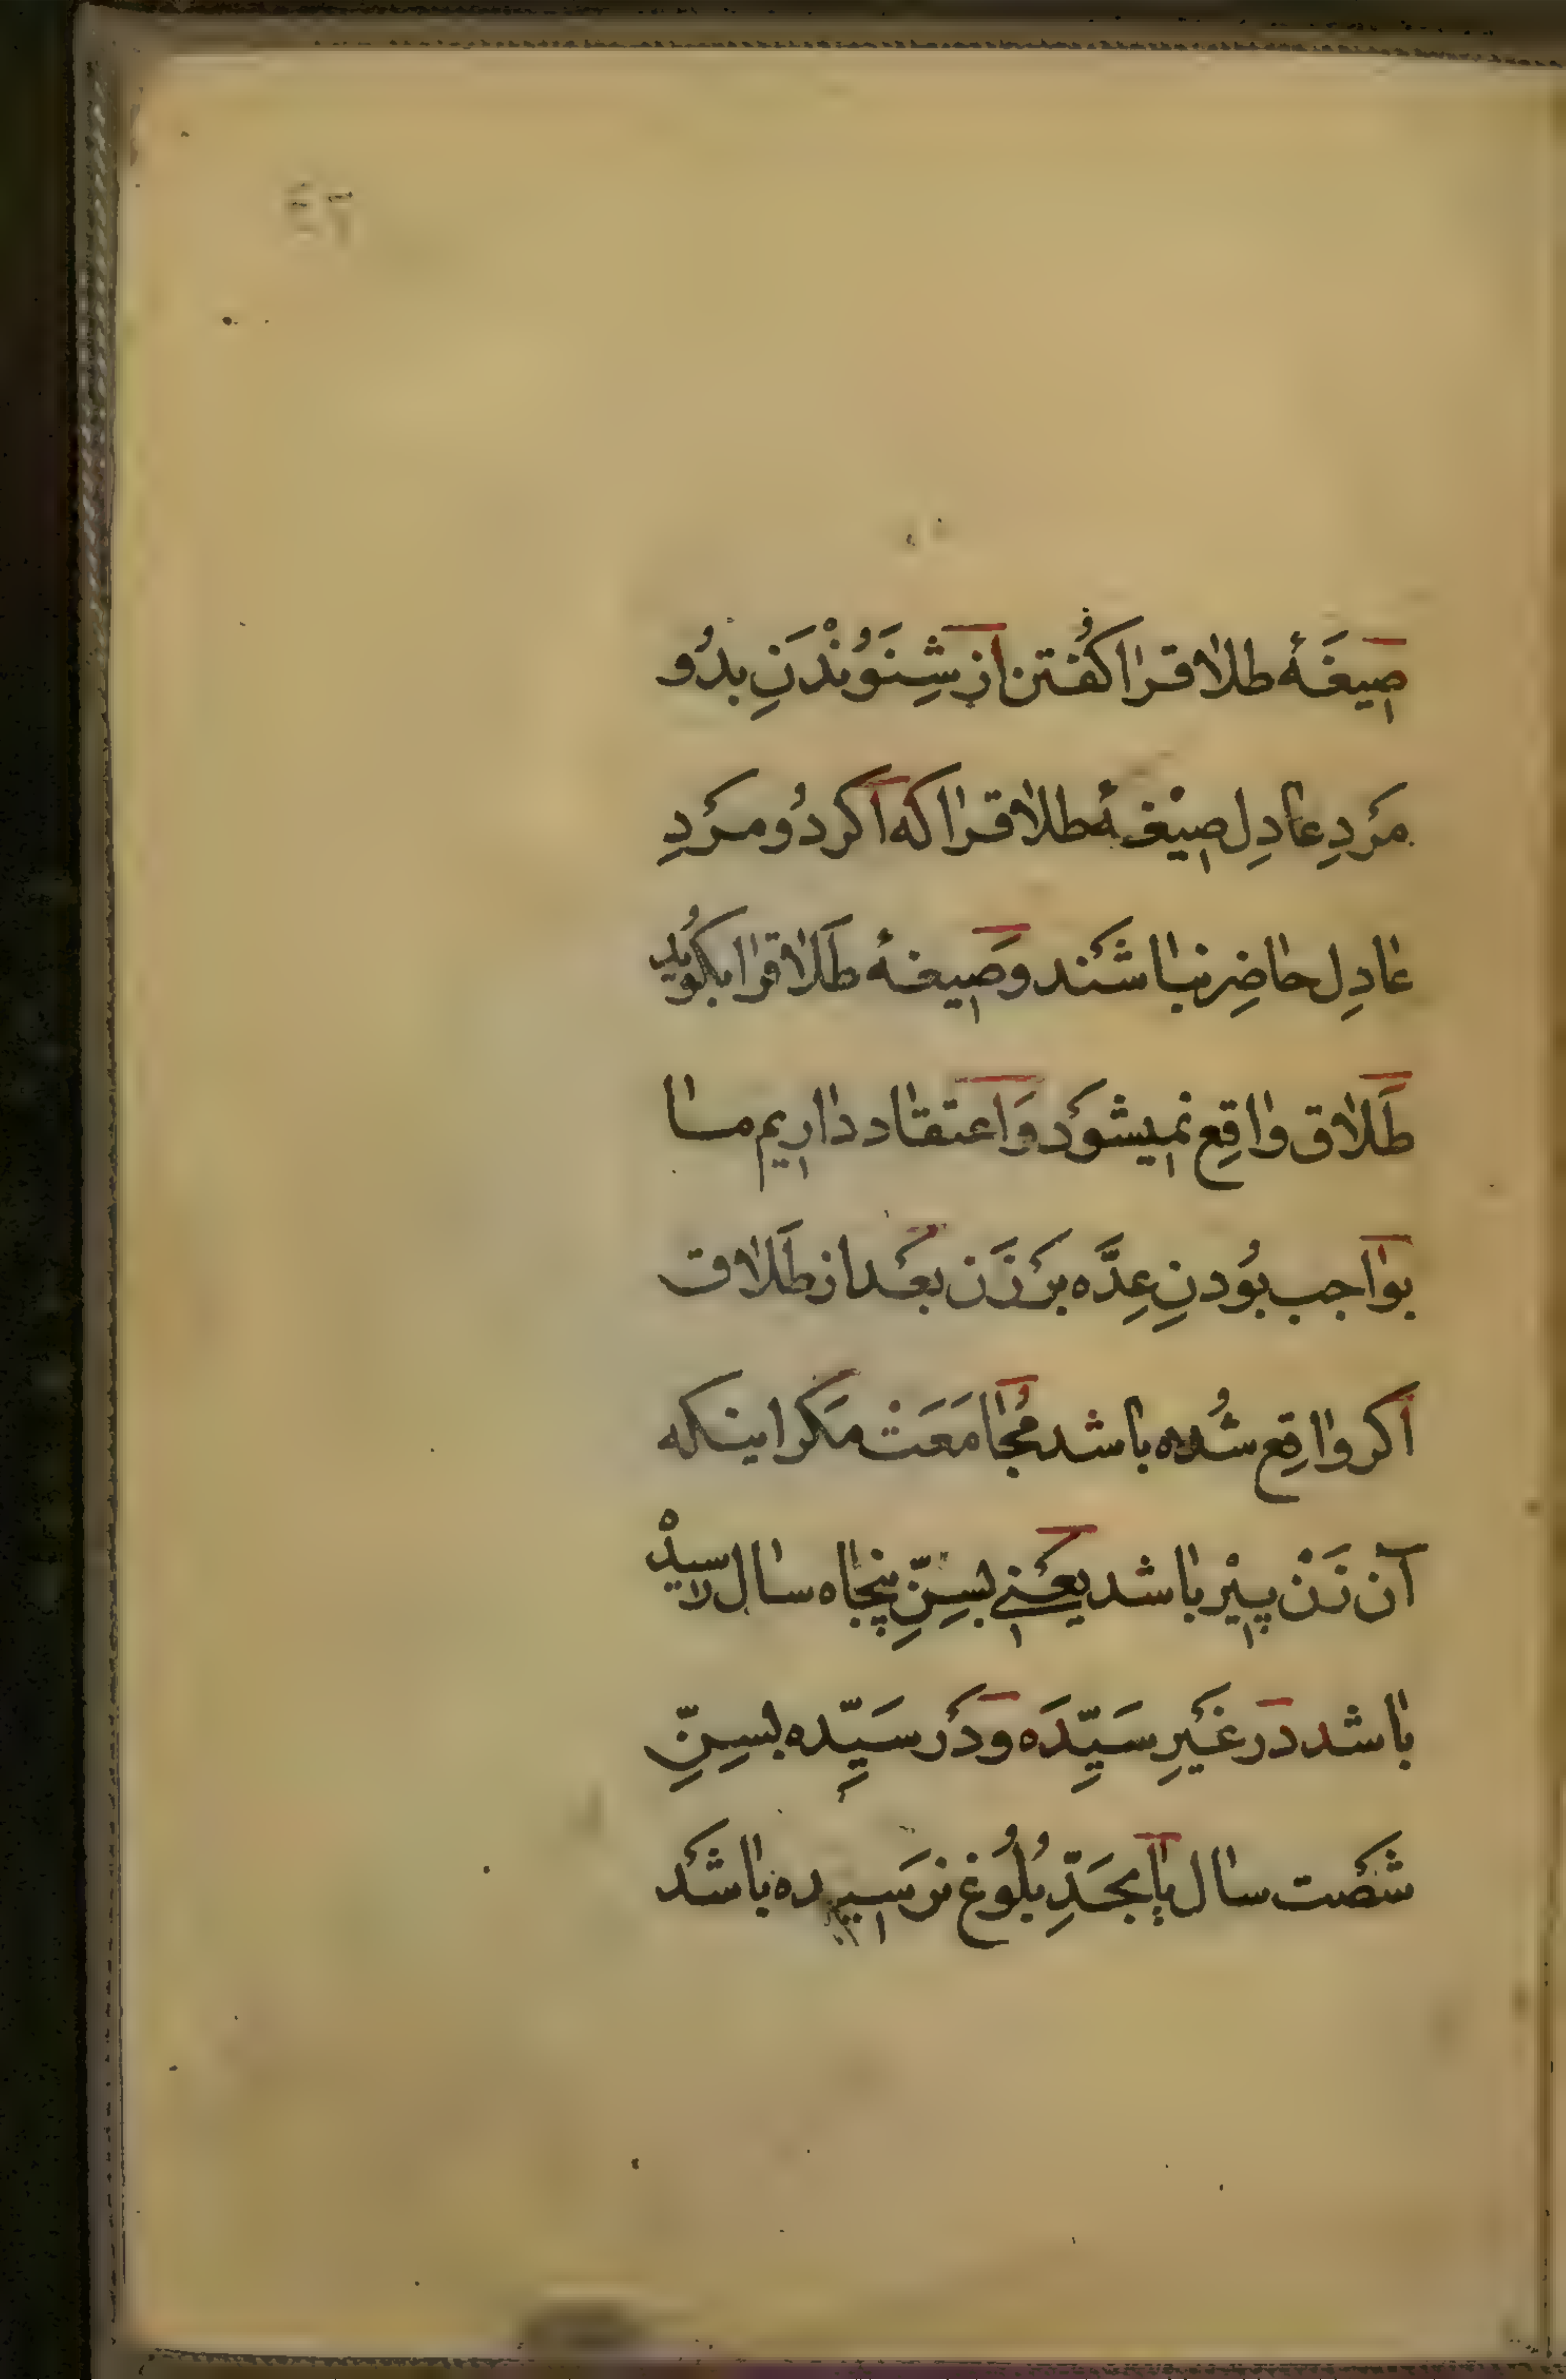 صِیغَهٔ طلاقرا کُفتن از شِنَوَنْدَنِ بدُو
مَردِ عادِل صِیْغهٔ طلاقرا که اکر دُو مَردِ
عادِل حاضِر نباشَند و صَیِغهٔ طَلاقرا بکُوید
طَلاق واقِع نمِیشوَد وَاعتقاد دارِیم ما
بوَاجب بُودنِ عِدَّه بَر زَن بَعد از طَلاق
اکر واقِع شُده باشد مُجامَعَتْ مَکر اینکه
آن زَنْ پِیْر باشد یَعنِی بسِنِّ پنجاه سال رسیدْه
باشد دَر غَیرِ سَیِّدَه وَ دَر سَیِّده بسِنِّ
شَصت سال یا بحَدِّ بُلُوغ نرَسِیده باشَد